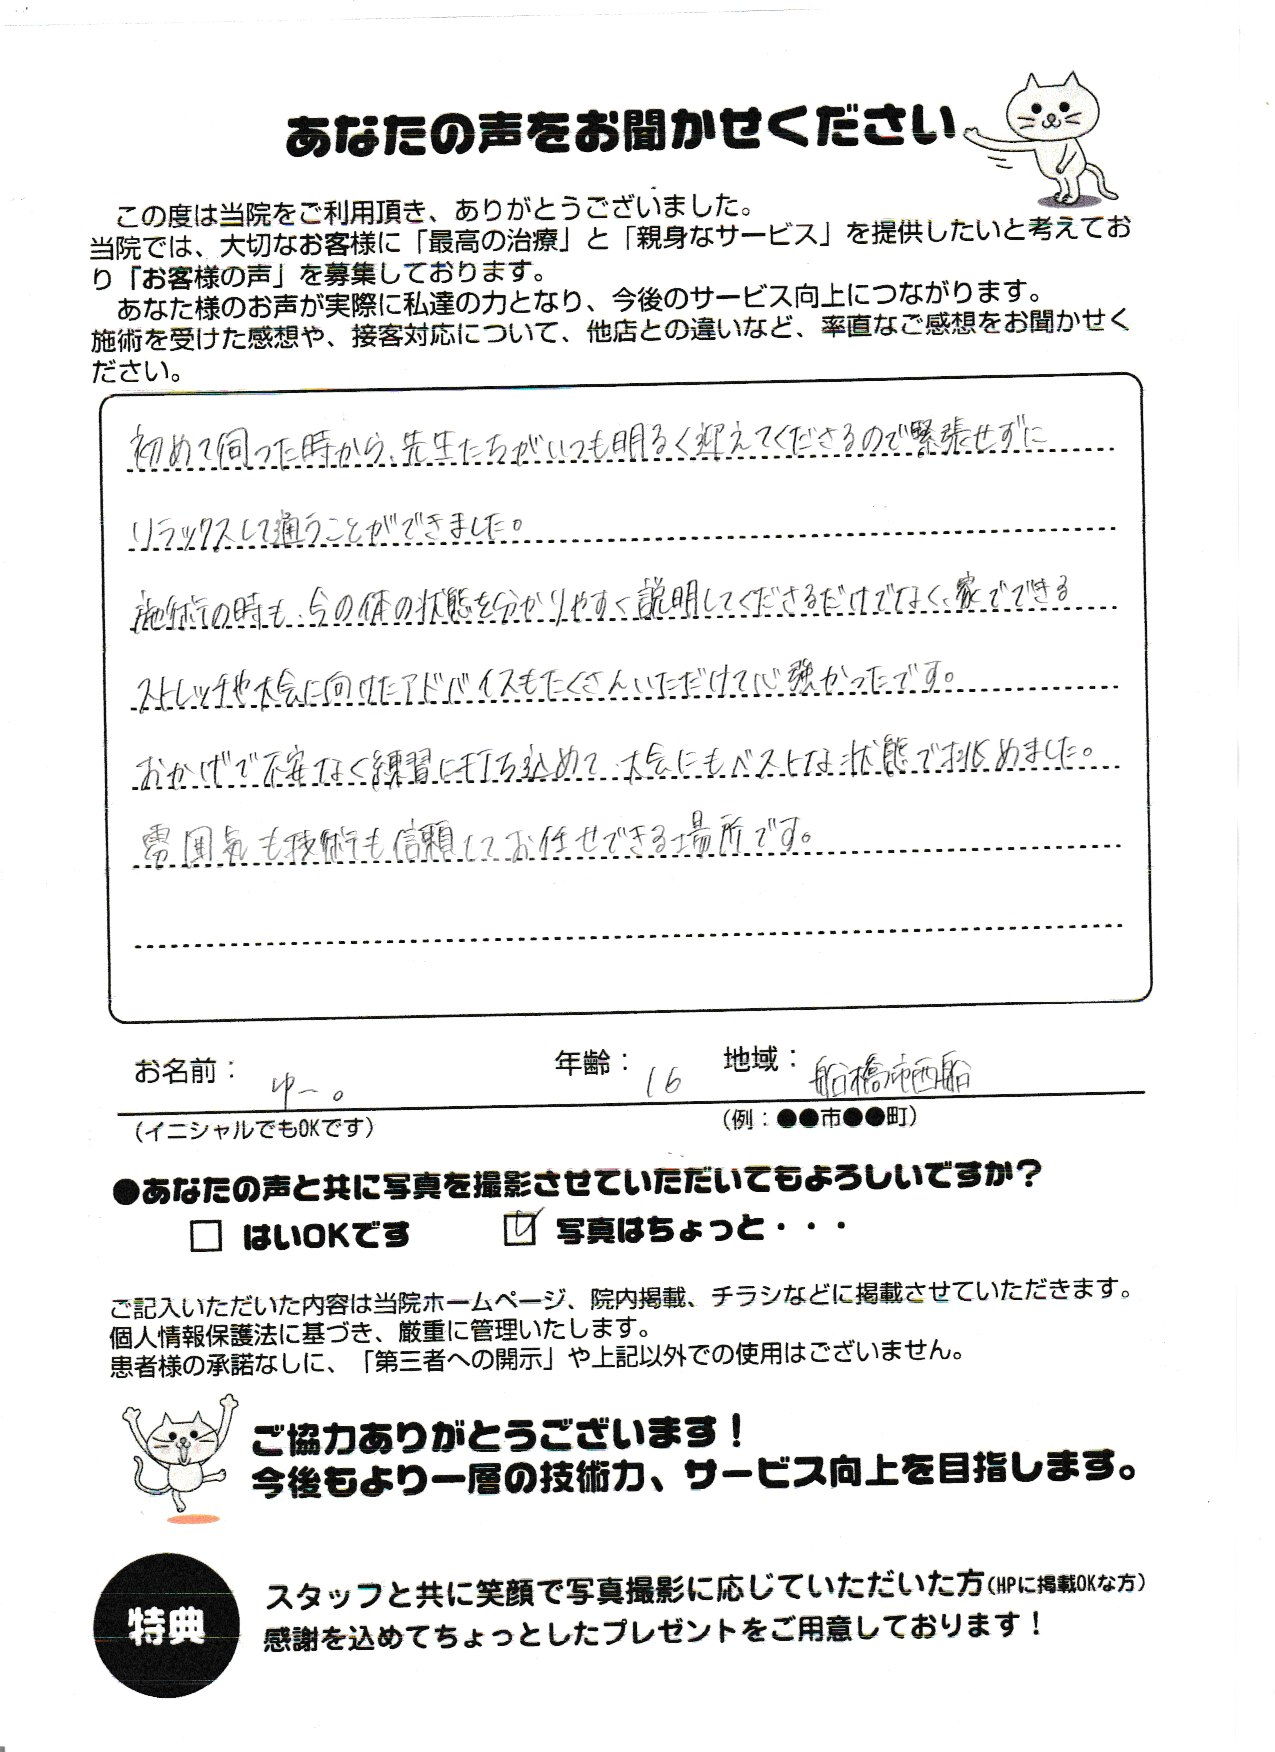 あなたの声をお聞かせください
この度は当院をご利用頂き、ありがとうございました。
当院では、大切なお客様に「最高の治療」と「親身なサービス」を提供したいと考えてお
り「お客様の声」を募集しております。
あなた様のお声が実際に私達の力となり、今後のサービス向上につながります。
施術を受けた感想や、接客対応について、他店との違いなど、率直なご感想をお聞かせく
ださい。
初めて伺った時から、先生たちがいつも明るく迎えてくださるので緊張せずに
リラックスして通うことができました。
施術の時も、今の体の状態を分かりやすく説明してくださるだけでなく、家でできる
ストレッチや大会に向けたアドバイスもたくさんいただけて心強かったです。
おかげで不安なく練習に打ち込めて、大会にもベストな状態で挑めました。
雰囲気も技術も信頼してお任せできる場所です。
お名前： ゆー。 年齢： 16 地域： 船橋市西船
（イニシャルでもOKです） （例：●●市●●町）
●あなたの声と共に写真を撮影させていただいてもよろしいですか？
□ はいOKです ☑ 写真はちょっと・・・
ご記入いただいた内容は当院ホームページ、院内掲載、チラシなどに掲載させていただきます。
個人情報保護法に基づき、厳重に管理いたします。
患者様の承諾なしに、「第三者への開示」や上記以外での使用はございません。
ご協力ありがとうございます！
今後もより一層の技術力、サービス向上を目指します。
特典
スタッフと共に笑顔で写真撮影に応じていただいた方（HPに掲載OKな方）
感謝を込めてちょっとしたプレゼントをご用意しております！